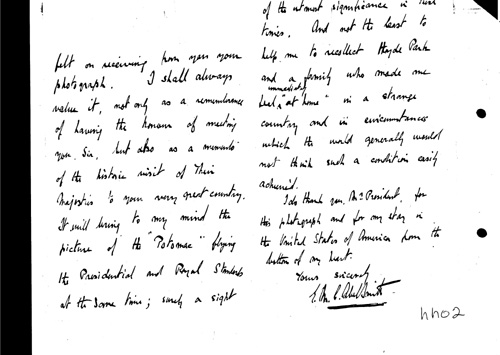 felt on receiving from you your
photograph. I shall always
value it, not only as a remembrance
of having the honour of meeting
you Sir, but also as a memento
of the historic visit of Their
Majesties to your very great country.
It will bring to my mind the
picture of the "Potomac" flying
the Presidential and Royal Standards
at the same time; surely a sight
of the utmost significance in these
times. And not the least to
help me to recollect Hyde Park
and a family who made me
immediately
feel "at home" in a strange
country and in circumstances
which the world generally would
not think such a condition easily
achieved.
I do thank you, Mr President, for
this photograph and for my stay in
the United States of America from the
bottom of my heart.
Yours sincerely
Abel Smith.
4402